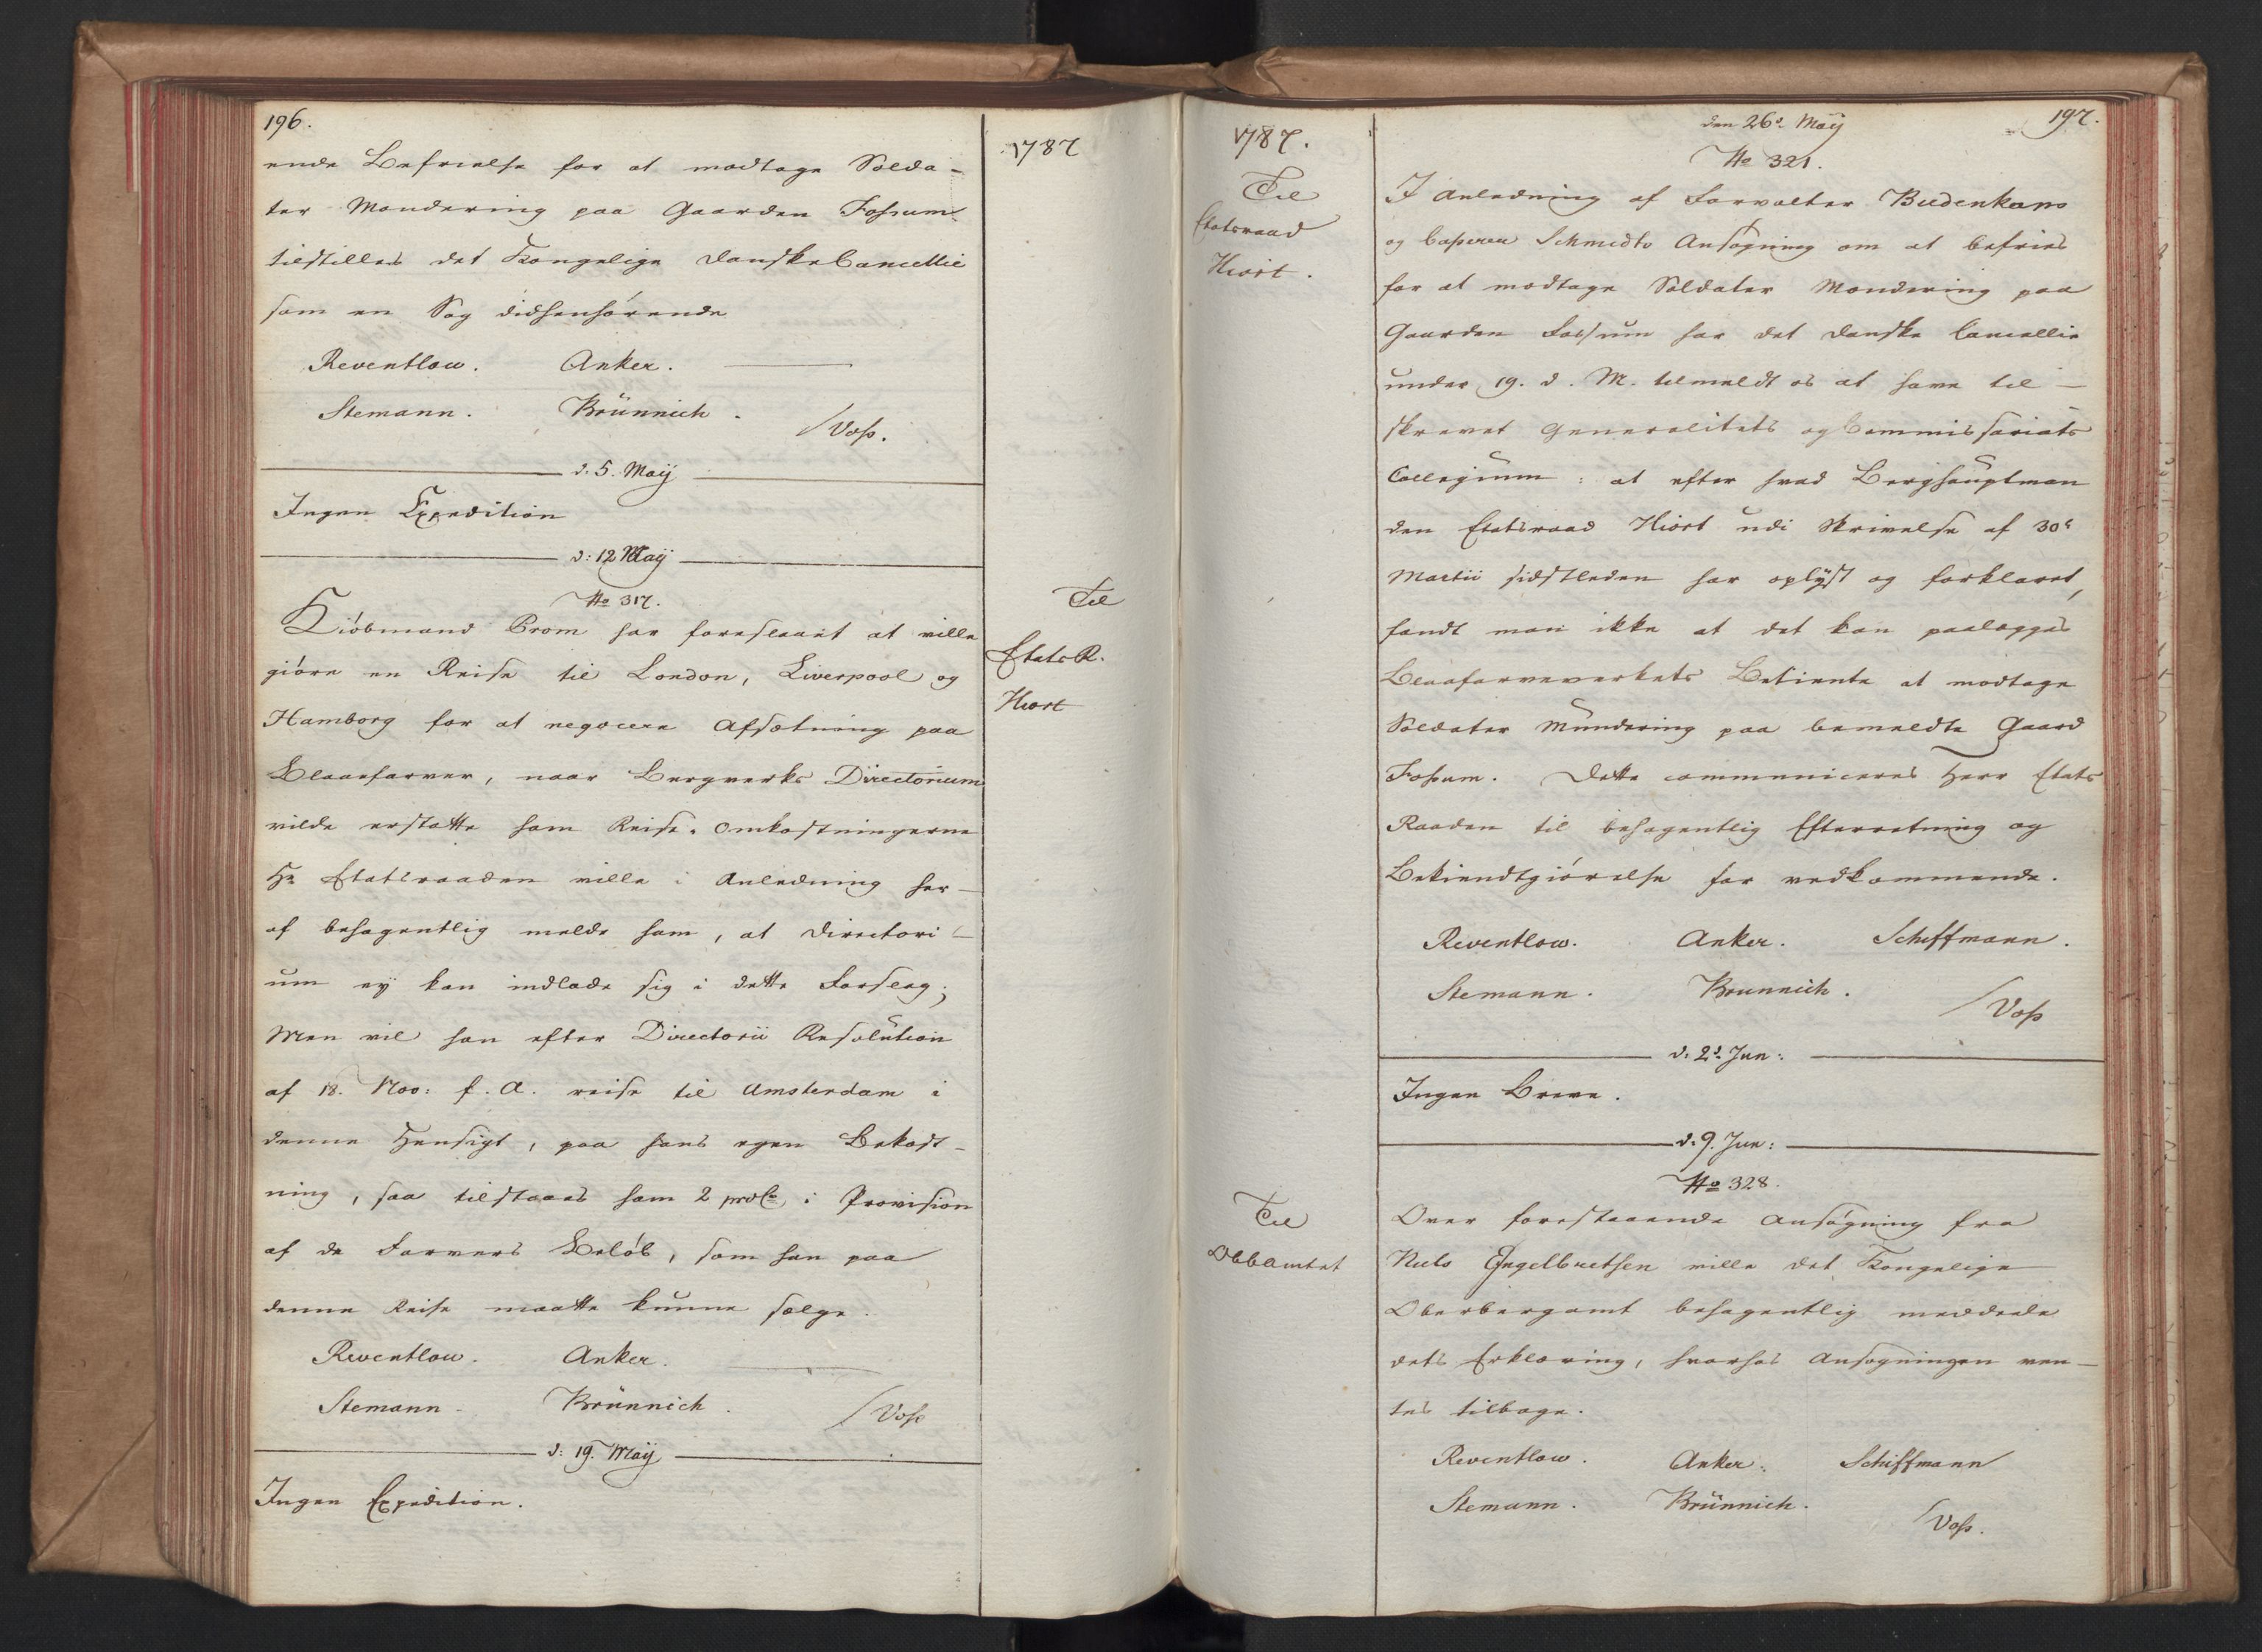 196.
1787
ende Befrielse for at modtage Solda-
ter Mondering paa Gaarden Fossum
tilstilles det Kongelige Danske Cancellie
som en Sag didhenhørende
Reventlow. Anker.
Stemann. Brünnich.
/Voss.
d. 5. Maij
Ingen Expedition
d: 12 Maij
No 317.
Til
Etats R.
Hiort
Kiöbmand Brom har foreslaaet at ville
giöre en Reise til London, Liverpool og
Hamborg for at negocere Afsætning paa
Blaaefarver, naar Bergverks Directorium
vilde erstatte ham Reise-Omkostningerne
Hr Etatsraaden ville i Anledning her-
af behagentlig melde ham, at Directori-
um ej kan indlade sig i dette Forslag;
Men vil han efter Directorii Resolution
af 18. Nov: f. A. reise til Amsterdam i
denne Hensigt, paa hans egen Bekost-
ning, saa tilstaaes ham 2 proCto i Provision
af de Farvers Belöb, som han paa
denne Reise maatte kunne sælge.
Reventlow. Anker.
Stemann. Brünnich.
/Voss
d: 19. Maij
Ingen Expedition.
1787.
den 26d. Maij
197.
No 321.
Til
Etatsraad
Hiort.
I Anledning af Forvalter Budenkans
og Casserer Schmidts Ansøgning om at befries
for at modtage Soldater Mondering paa
Gaarden Fossum har det Danske Cancellie
under 19. d. M. tilmeldt os at have til-
skrevet Generalitets og Commissariats
Collegium: at efter hvad Berghauptman
den Etatsraad Hiort udi Skrivelse af 30t
Martii sidstleden har oplyst og forklaret,
fandt man ikke at det kan paalægges
Blaafarveverkets Betiente at modtage
Soldater Mundering paa bemeldte Gaard
Fossum. Dette communiceres Herr Etats
Raaden til behagentlig Efterretning og
Bekiendtgiörelse for vedkommende.
Reventlow. Anker. Schiffmann.
Stemann. Brunnich.
/Voss
d. 2d. Jun:
Ingen Breve.
d. 9. Jun:
No 328.
Til
ObbAmtet
Over forestaaende Ansøgning fra
Niels Engelbretsen ville det Kongelige
Oberbergamt behagentlig meddeele
dets Erklæring, hvorhos Ansøgningen ven-
tes tilbage.
Reventlow. Anker. Schiffmann
Stemann. Brünnich.
/Voss.